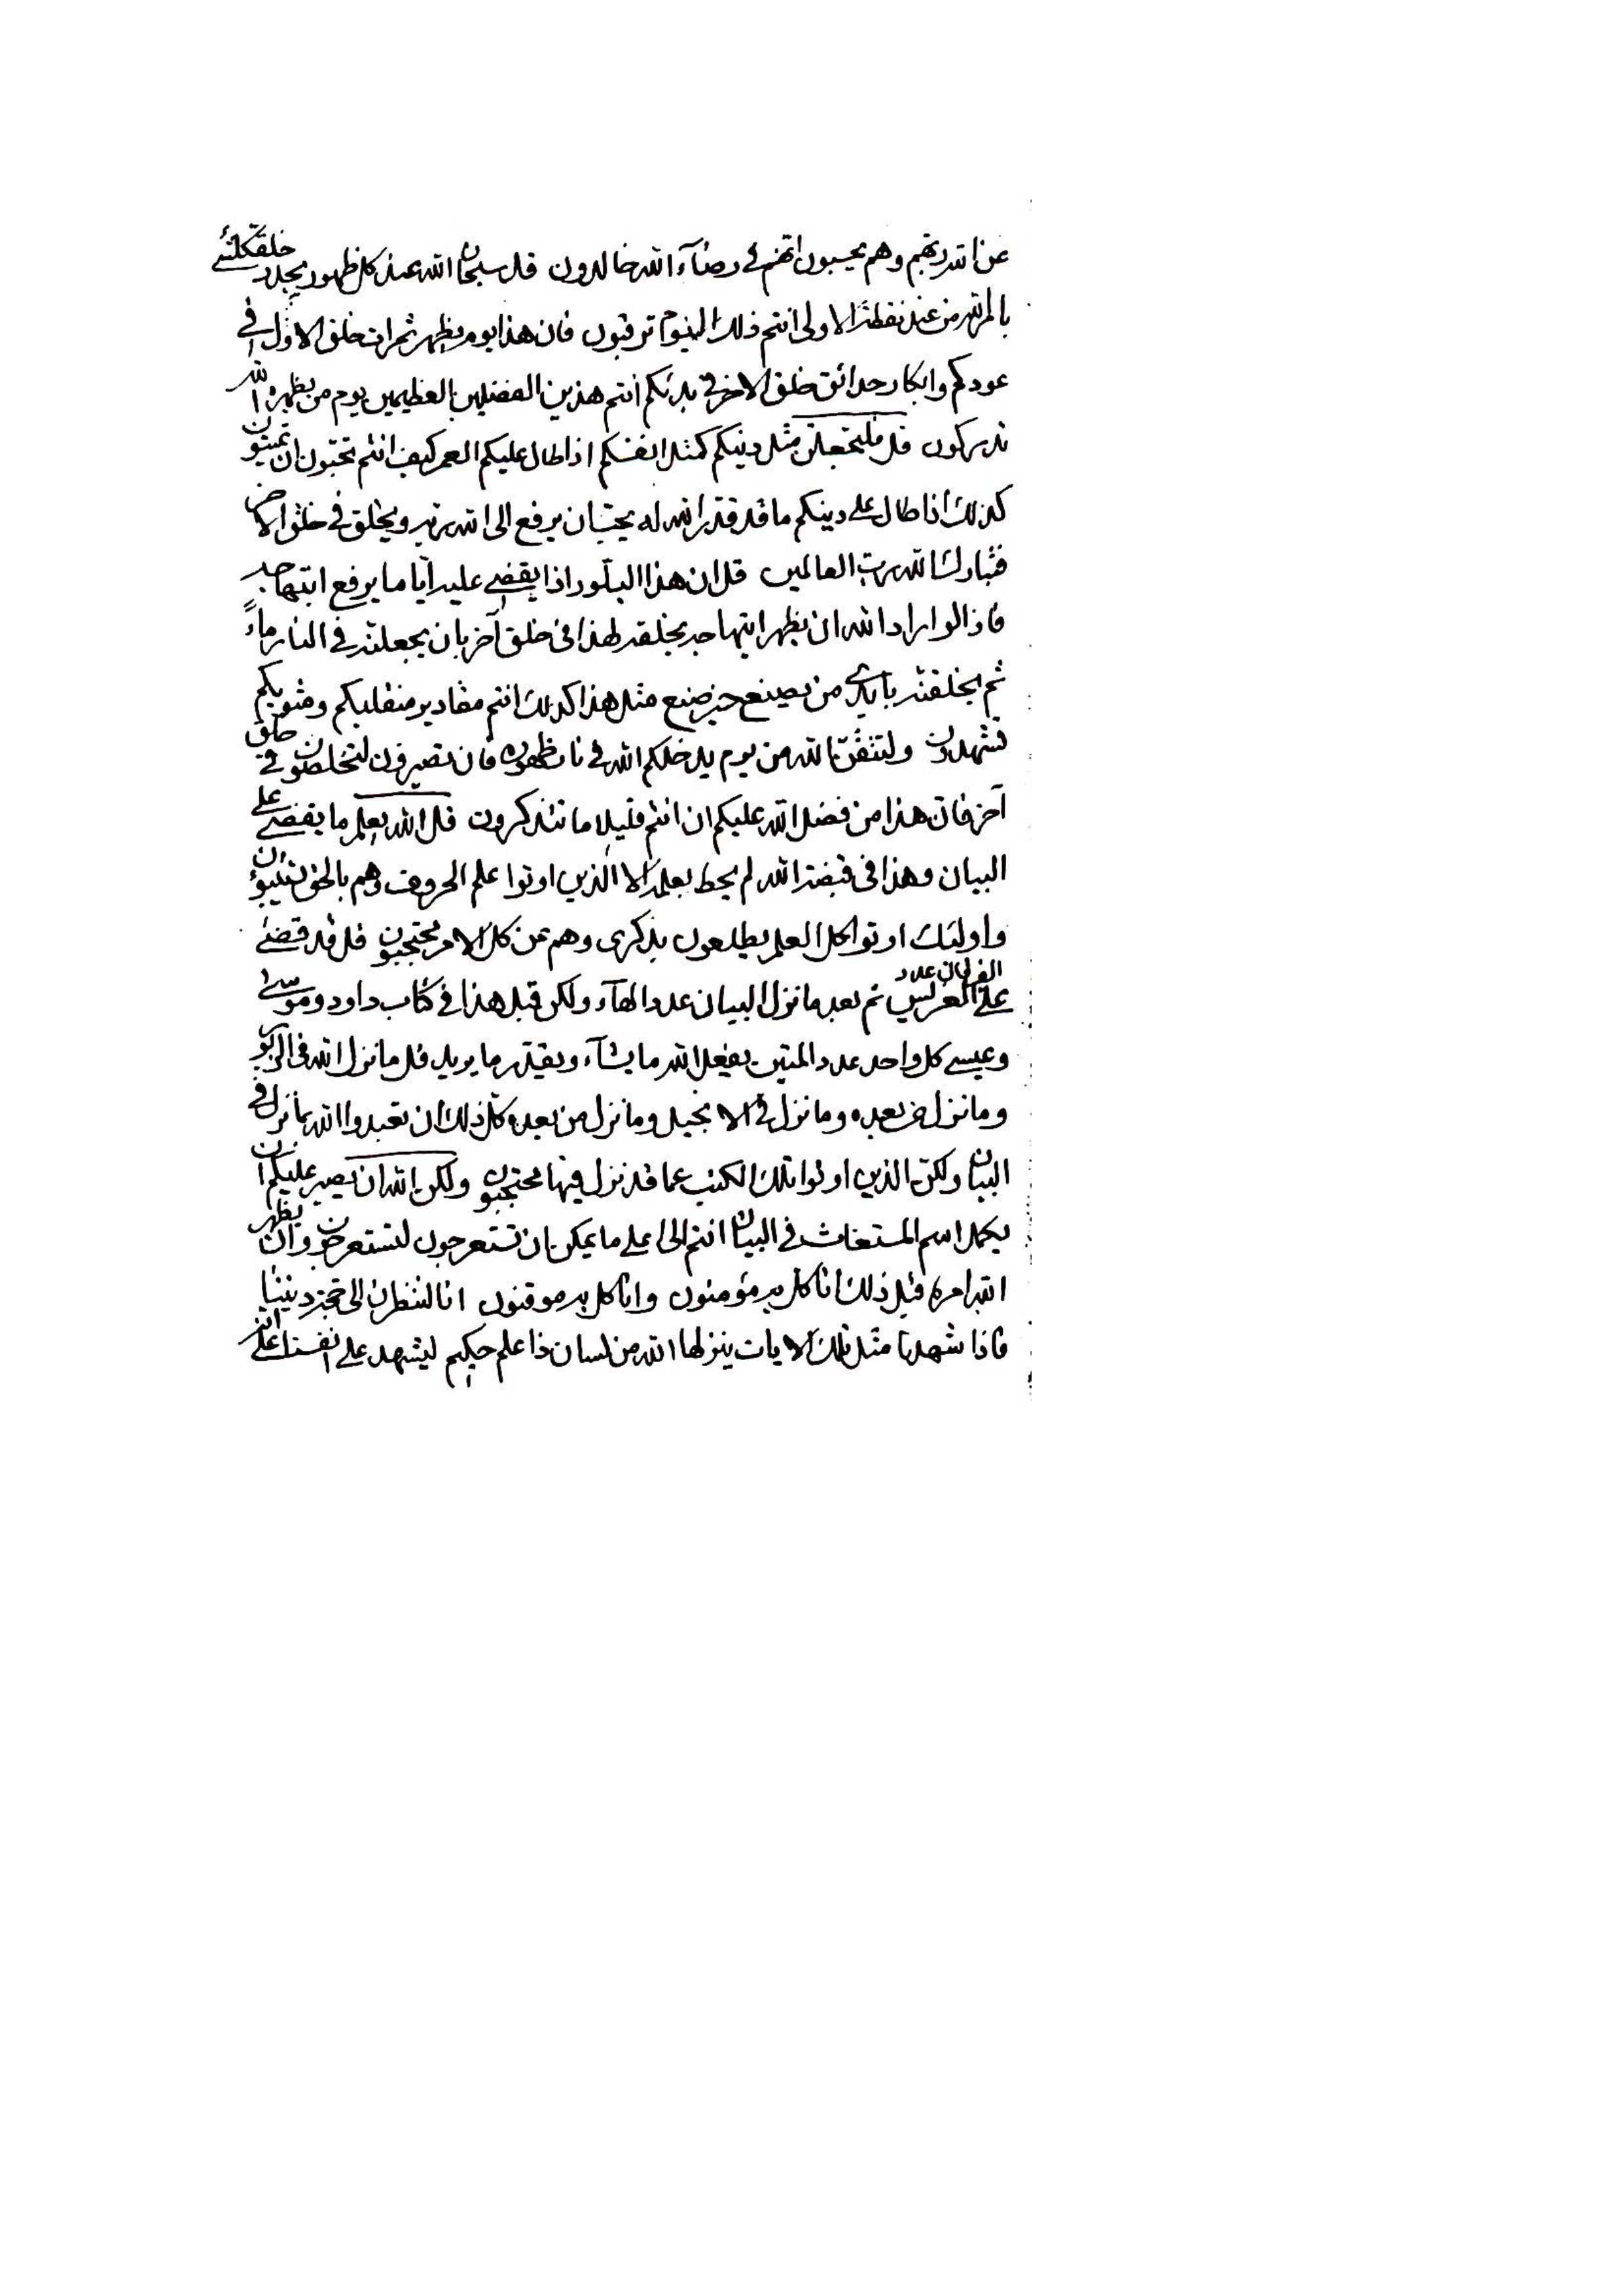 عن الله ربهم وهم يحسبون انهم في رضآء الله خالدون قل سبحان الله عند كل ظهور يجدد خلق كلشئ
بامر الله من عند نقطة الاولى انتم ذلك اليوم ترقبون فان هذا يوم يظهر ثمرات خلق الاول في
عودكم وابكار حدائق خلق الاخر في بدئكم انتم هذين الفضلين العظيمين يوم من يظهره الله
تدركون قل فلتجعلن مثل دينكم كمثل انفسكم اذا طال عليكم العمر كيف انتم تحبون ان تميتون
كذلك اذا طال على دينكم ما قد قدر الله له يحب ان يرفع الى الله ربه ويخلق في خلق الاخر
فتبارك الله رب العالمين قل ان هذا البلور اذا يقضى عليه اياما يرفع ابتهاجه
فاذا لو اراد الله ان يظهر ابتهاجه يخلقه لهذا في خلق آخر بان يجعلنه في النار ماءً
ثم يخلقنه بايدي من يصنع خير صنع مثل هذا كذلك انتم مقادير منقلبكم ومثويكم
تشهدون ولتتقن الله من يوم يدخلكم الله في نار ظهوره فان تصبرون لتخلصون في خلق
آخر فان هذا من فضل الله عليكم ان انتم قليلا ما تتذكرون قل الله يعلم ما يقضى على
البيان وهذا في قبضة الله لم يحط بعلمه الا الذين اوتوا علم الحروف وهم بالحق ينبئون
واولئك اوتوا كل العلم يطلعون بذكرى وهم عن كل الامر محتجبون قل قد قضى
على الفرقان عدد الغرس ثم بعد ما نزل البيان عدد الهآء ولكن قبل هذا في كتاب داود وموسى
وعيسى كل واحد عدد المتين يفعل الله ما يشآء ويقدر ما يريد قل ما نزل الله في الزبور
وما نزل من بعده وما نزل في الانجيل وما نزل من بعده كل ذلك ان تعبدوا الله بما نزل في
البيان ولكن الذين اوتوا تلك الكتب عما قد نزل فيها محتجبون ولكن الله ان يصبر عليكم ان
يكمل اسم المستغاث في البيان انتم الى اعلى ما يمكن ان تستعرجون لتستعرجون وان يظهر
الله امره قبل ذلك انا كل به مؤمنون وانا كل به موقنون انا لننظرن الى حجة ديننا
فاذا شهدنا مثل تلك الايات ينزلها الله من لسان ذا علم حكيم ليشهد على انفسنا على انه